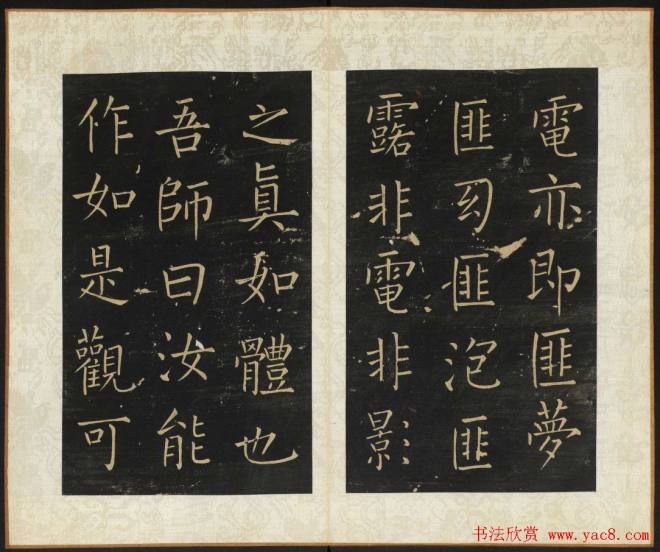 電亦即匪夢
匪幻匪泡匪
露非電非影
之真如體也
吾師曰汝能
作如是觀可
书法欣赏 www.yac8.com